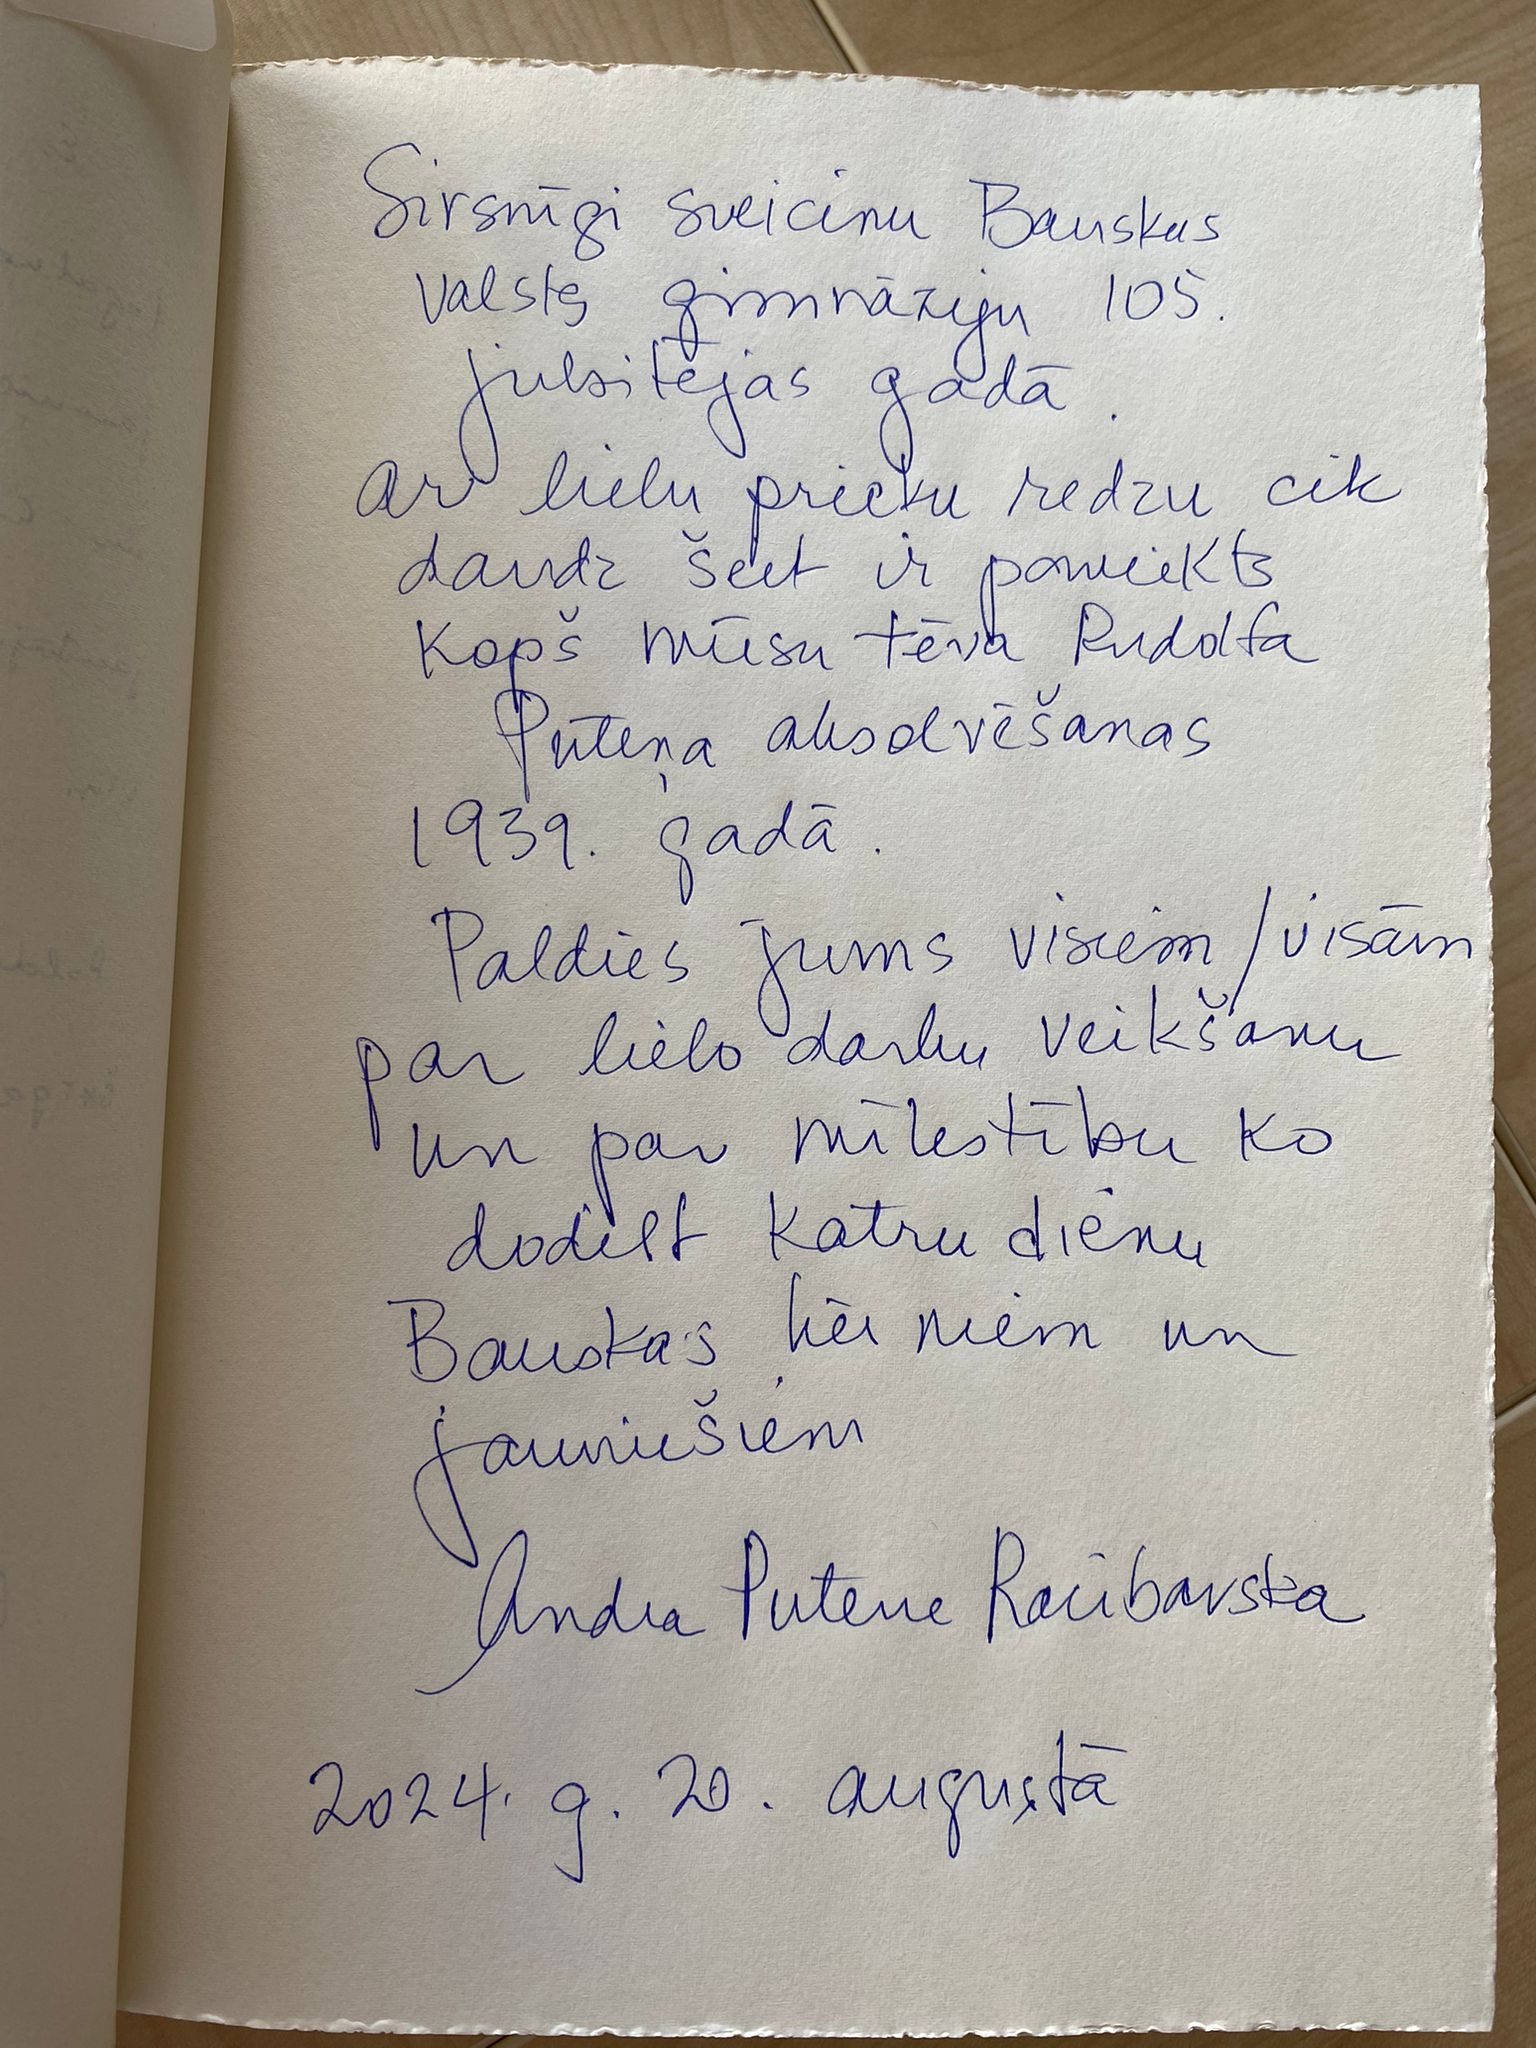 Sirsnīgi sveicinu Bauskas
Valsts ģimnāziju 105.
jubilejas gadā.
Ar lielu prieku redzu cik
daudz šeit ir paveikts
Kopš mūsu tēva Rudolfa
Pūteņa absolvēšanas
1939. gadā.
Paldies jums visiem/visām
par lielo darbu veikšanu
un par mīlestību ko
dodat katru dienu
Bauskas bērniem un
jauniešiem
Andra Putene Racibarska
2024. g. 20. augustā